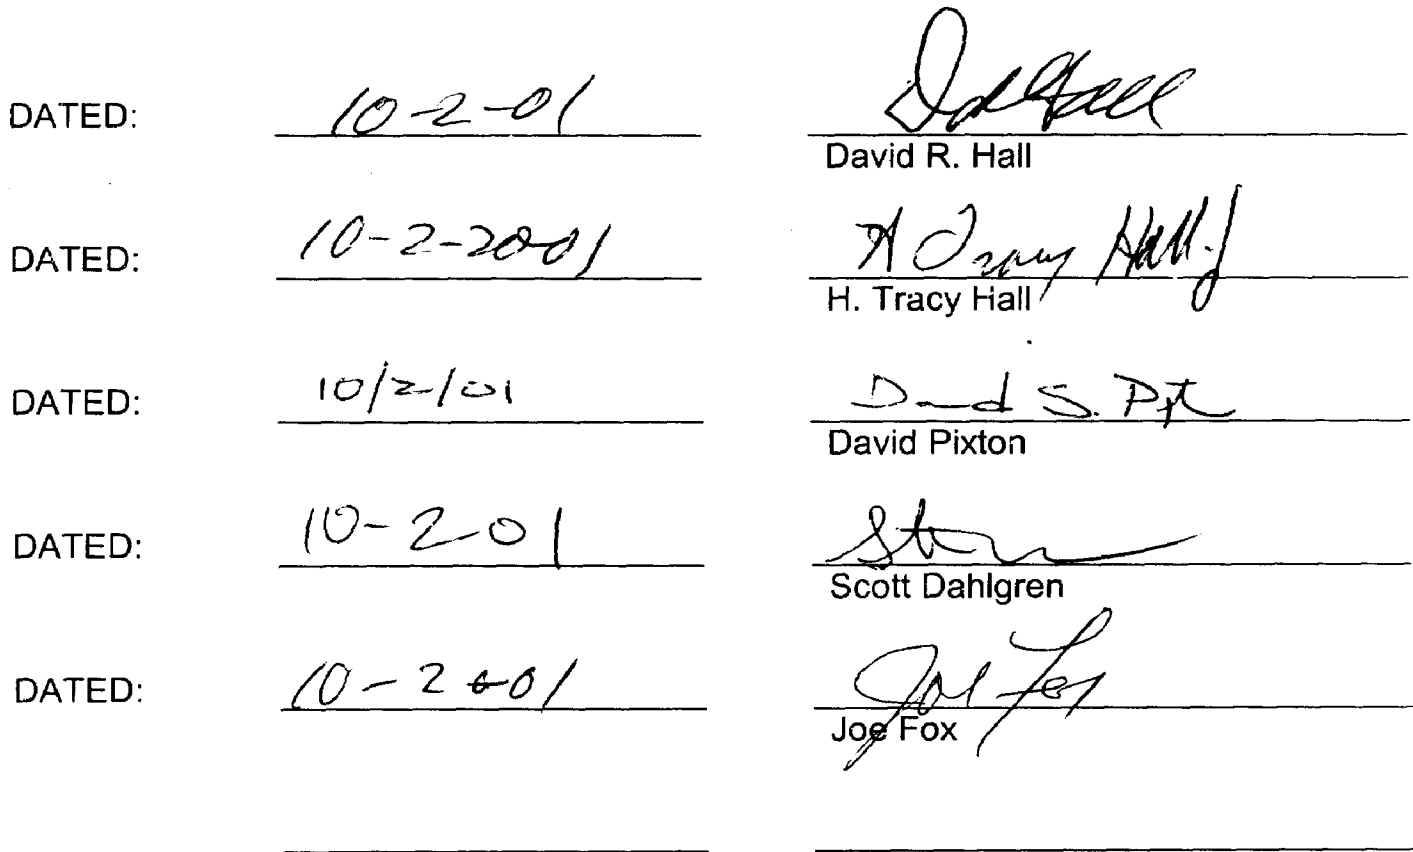 DATED: 10-2-01 David Hall
David R. Hall
DATED: 10-2-2001 H Tracy Hall Jr
H. Tracy Hall
DATED: 10/2/01 David S. Pixton
David Pixton
DATED: 10-2-01
Scott Dahlgren
DATED: 10-2-01 Joe Fox
Joe Fox